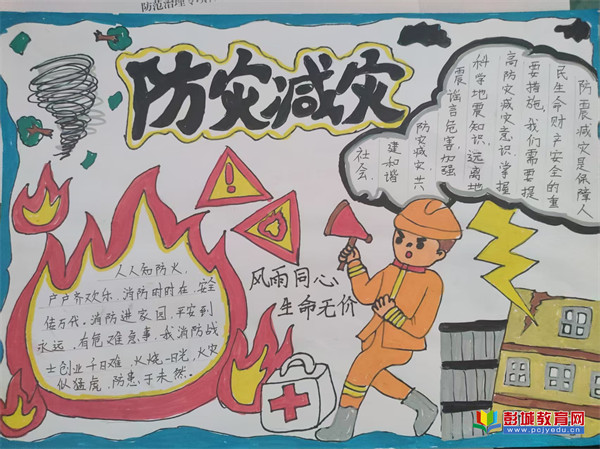 防范治理专项
防灾减灾
防震减灾是保障人
民生命财产安全的重
要措施,我们需要提
高防灾减灾意识,掌握
科学地震知识,远离地
震谣言危害,加强
防灾减灾,共
建和谐
社会。
风雨同心
生命无价
人人知防火,
户户齐欢乐,消防时时在,安全
传万代,消防进家园,平安到
永远,有危难急事,我消防战
士创业千日难,火烧一日光,火灾
似猛虎,防患于未然。
彭城教育网
www.pcjyedu.cn